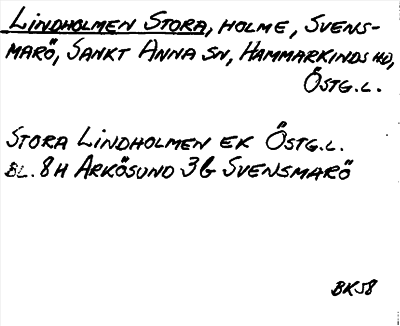 LINDHOLMEN STORA, HOLME, SVENS-
MARÖ, SANKT ANNA SN, HAMMARKINDS HD,
ÖSTG.L.
STORA LINDHOLMEN EK ÖSTG.L.
BL. 8H ARKÖSUND 3G SVENSMARÖ
BK58